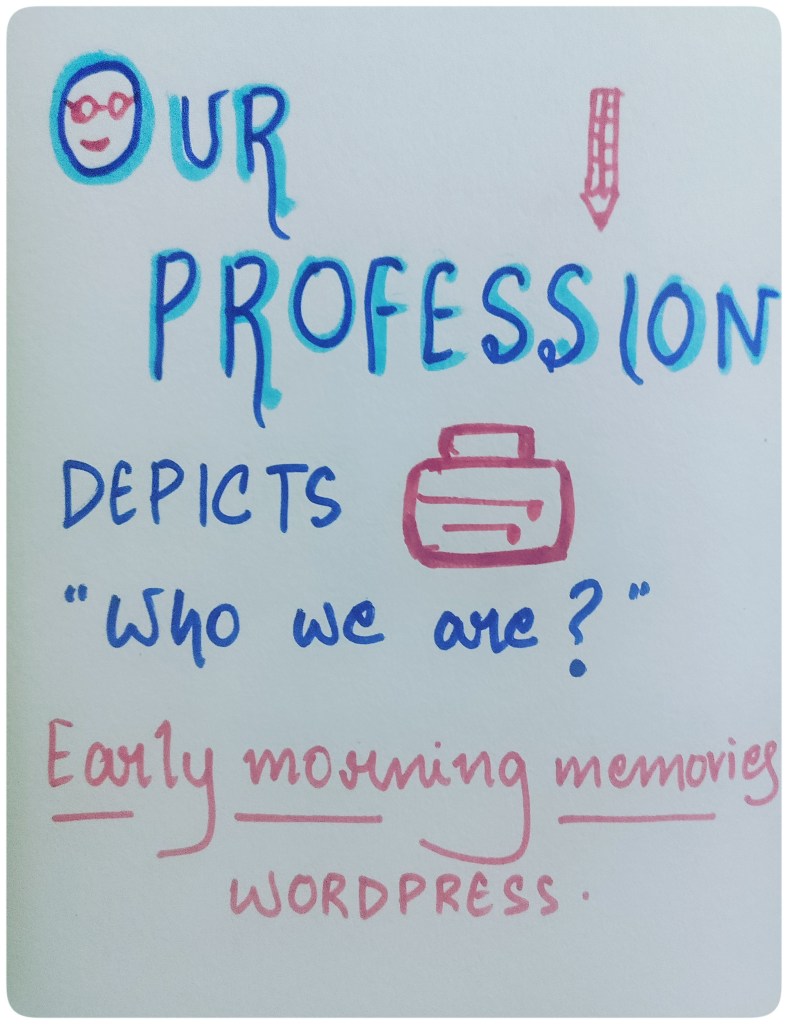 OUR
PROFESSION
DEPICTS
"Who we are?"
Early morning memories
WORDPRESS.